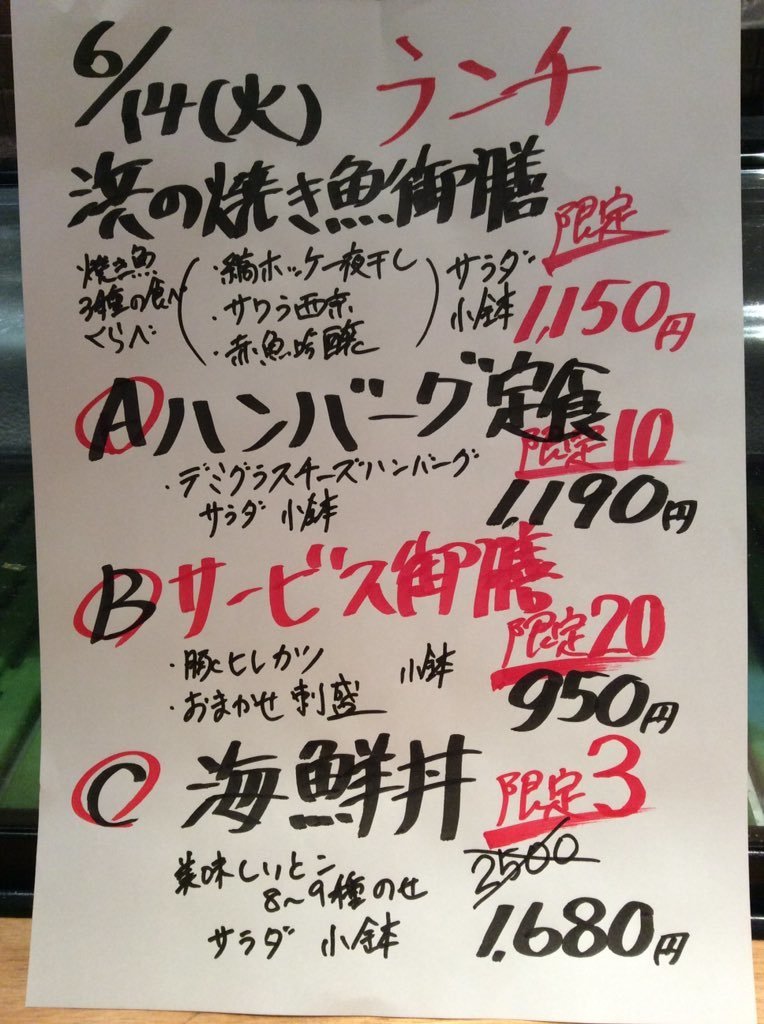 6/14(火) ランチ
浜の焼き魚御膳
限定
焼き魚
3種の食べ
くらべ
・縞ホッケ一夜干し
・サワラ西京
・赤魚吟醸
サラダ
小鉢
1,150円
Aハンバーグ定食
限定10
・デミグラスチーズハンバーグ
サラダ 小鉢
1,190円
Bサービス御膳
限定20
・豚ヒレカツ 小鉢
・おまかせ刺盛
950円
C 海鮮丼 限定3
美味しいとこ
8〜9種のせ
2500
サラダ 小鉢
1,680円